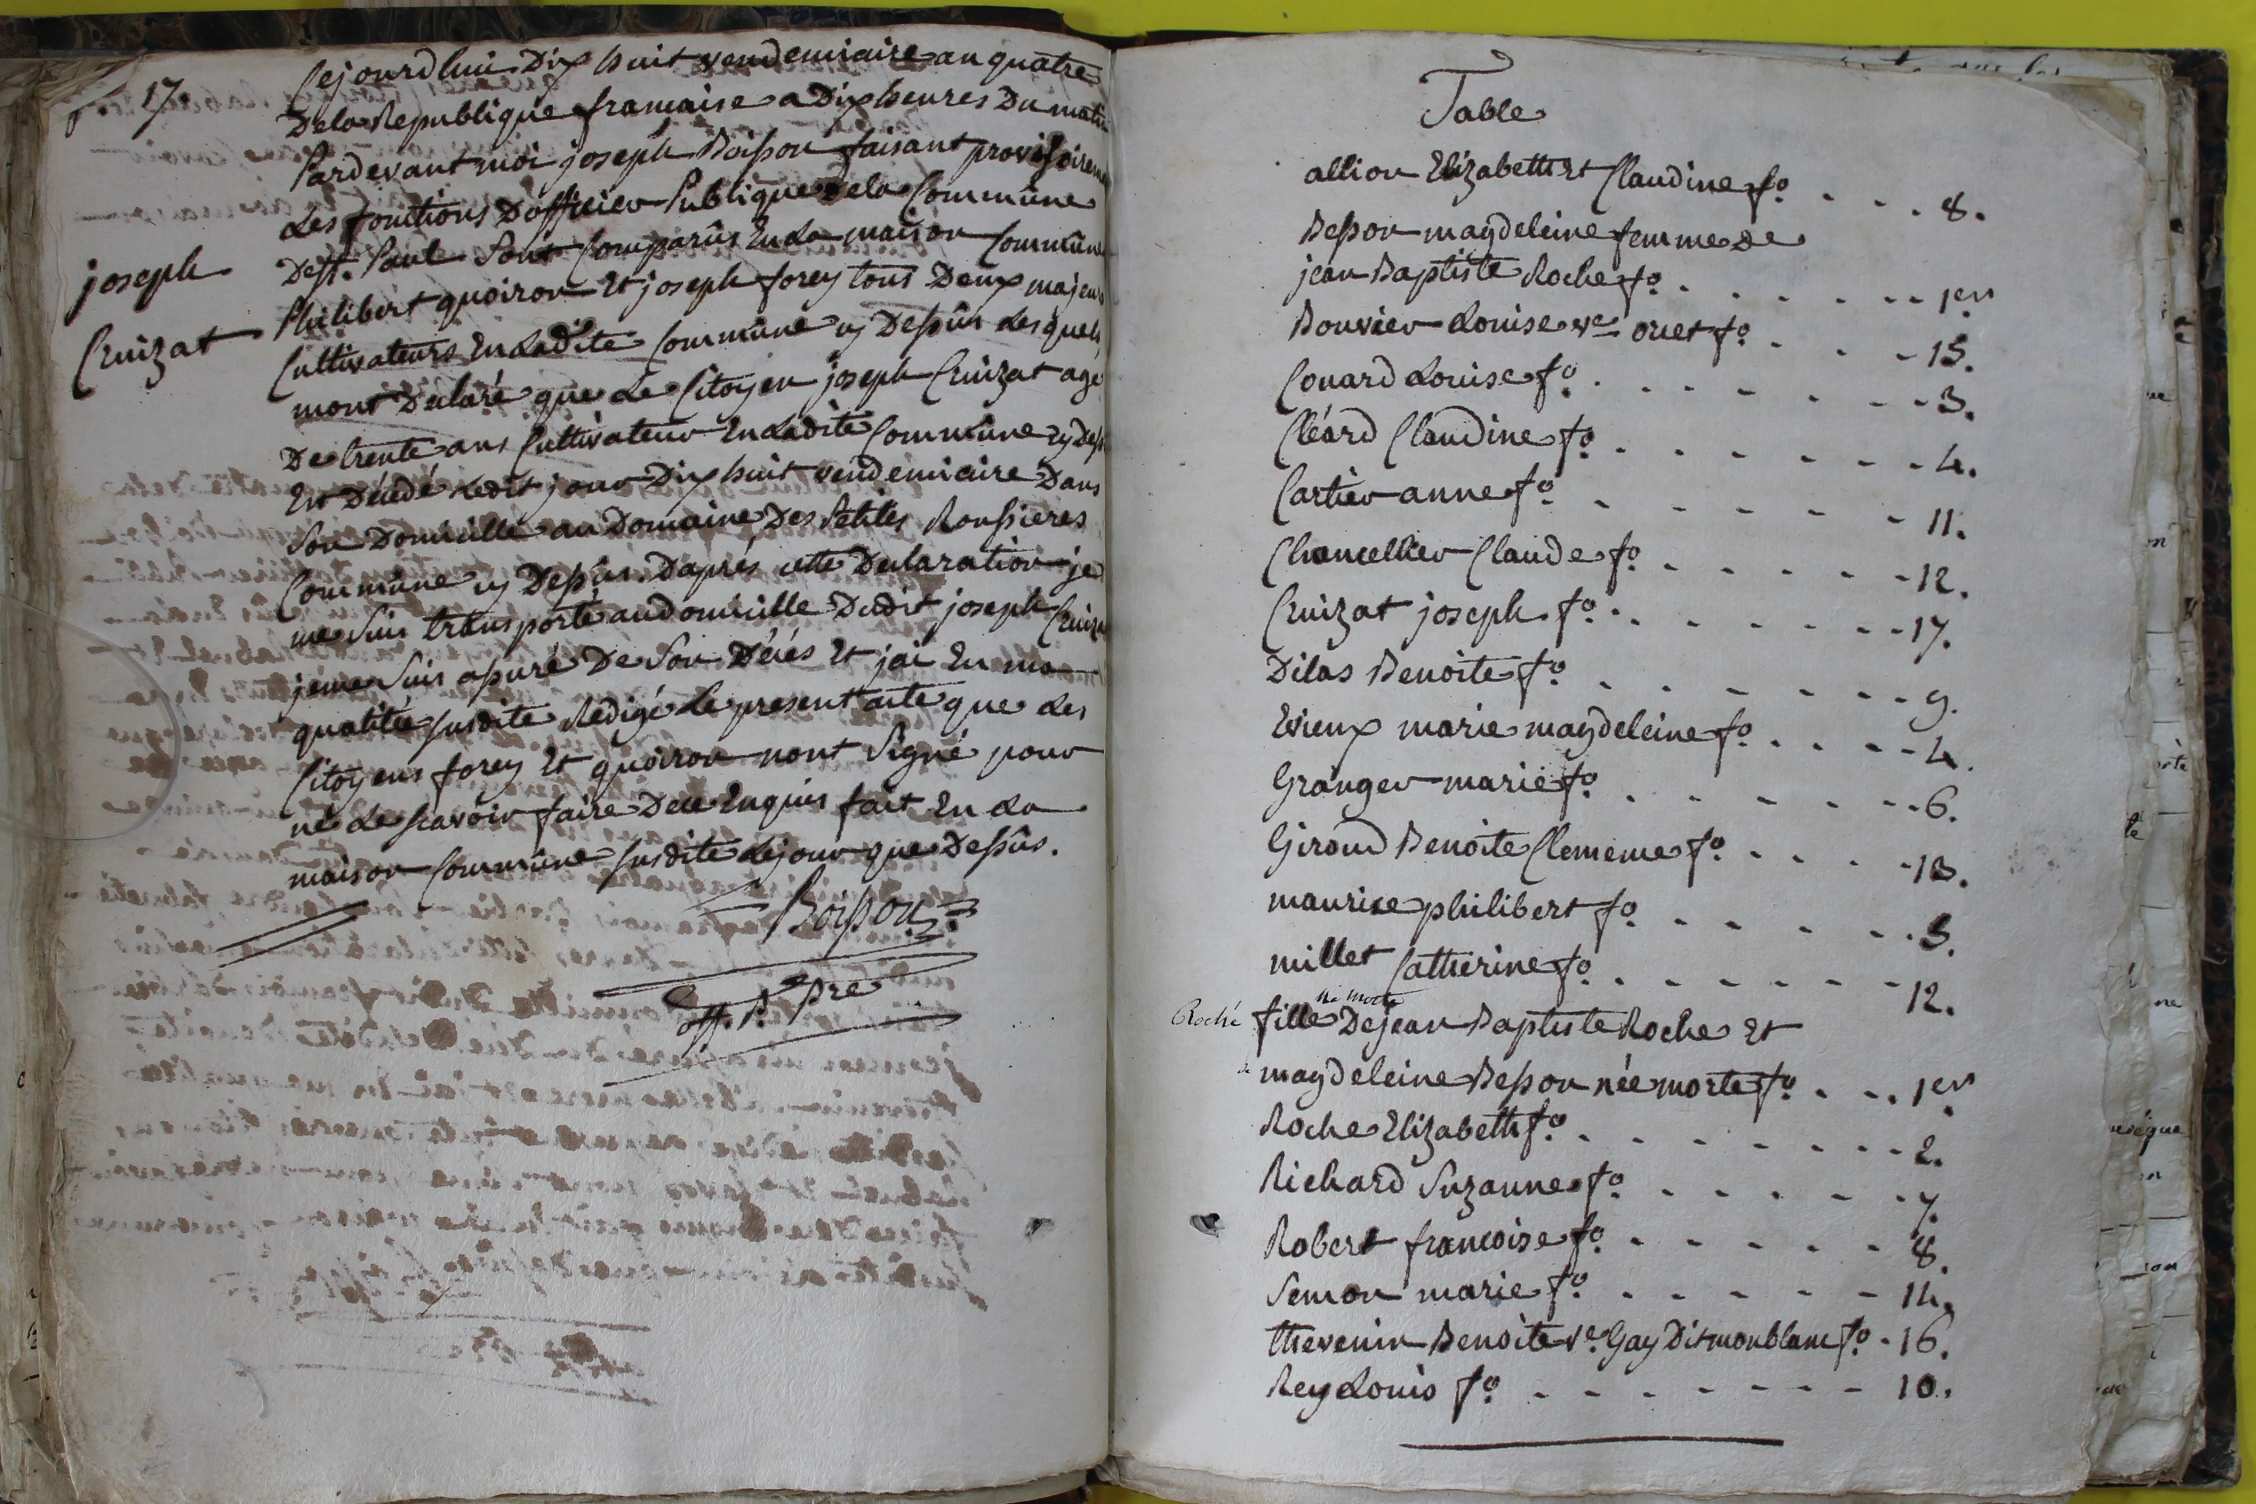 f.° 17.
joseph
Cruizat
Cejourdhui Dix huit vendemiaire an quatre
Dela Republique francaise a Dix heures Du matin
Pardevant moi joseph Boisson faisant provisoirem
les fonctions D'officier Publique Dela Commune
De st. Paul Sont Comparûs En la maison Commûne
Philibert quoiron Et joseph forey tous Deux majeurs
Cultivateurs En Ladite Commûne cy Dessûs Lesquels
mont Déclaré que Le Citoyen joseph Cruizat agé
De trente ans Cultivateur En Ladite Commûne cy Dess
Est Décédé Ledit jour Dix huit vendemiaire Dans
Son Domicille au Domaine Des Petites Roussieres
Commûne cy Dessus. Daprés cette Declaration je
me Suis transporté au domicille Dudit joseph Cruiza
jeme Suis assuré De Son Décés Et jai En ma
qualitée susdite Rédigé Le present acte que Les
Citoyens forey Et quoiron nont Signé pour
ne Le scavoir faire De ce Enquis fait En La
maison Commûne susdite Lejour que Dessûs.
Boisson
off. p. pre
Table
allion Elizabeth Et Claudine f.° . . . . 8.
Besson magdeleine femme De
jean Baptiste Roche f.° . . . . . . 1er
Bouvier Louise ve oriet f.° . . . 15.
Couard Louise f.° . . . . . . . 3.
Cléard Claudine f.° . . . . . . . 4.
Cartier anne f.° . . . . . . 11.
Chancellier Claude f.° . . . . . . 12.
Cruizat joseph f.° . . . . . . . 17.
Dilas Benoite f.° . . . . . . . 9.
Evieux marie magdeleine f.° . . . . 4.
Granger marie f.° . . . . . . . 6.
Giroud Benoite Clemence f.° . . . . 13.
maurice philibert f.° . . . . . . 5.
millet Catherine f.° . . . . . . . 12.
Roché fille Née morte De jean Baptiste Roche Et
magdeleine Besson née morte f.° . . . 1er.
Roche Elizabeth f.° . . . . . . . 2.
Richard Suzanne f.° . . . . . . 7.
Robert francoise f.° . . . . . . 8.
Semon marie f.° . . . . . . 14.
thevenin Benoite ve Gay Dit monblanc f.° . 16.
Rey Louis f.° . . . . . . . . 10.